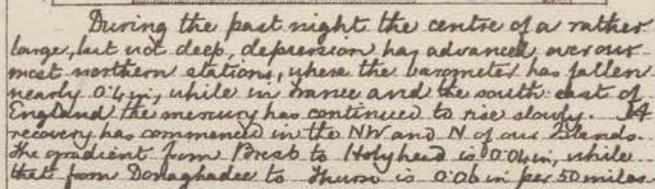 During the past night the centre of a rather
large, but not deep, depression has advanced over our
most northern stations, where the barometer has fallen
nearly 0.4 in, while in France and the south east of
England the mercury has continued to rise slowly. A
recovery has commenced in the NW and N of our Islands.
The gradient from Brest to Holyhead is 0.04 in, while
that from Donaghadee to Thurso is 0.06 in per 50 miles.